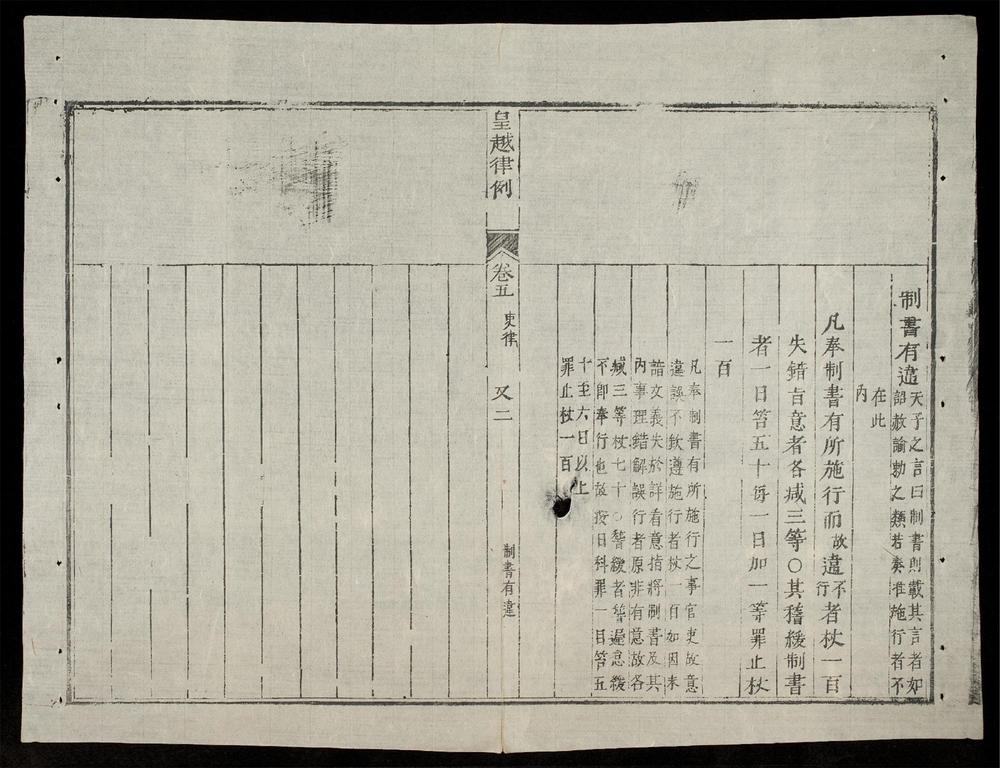 制書有違
天子之言曰制書則載其言者如
詔赦諭勅之類若奏准施行者不
在此
内
凡奉制書有所施行而故違不行者杖一百
失錯旨意者各减三等○其稽緩制書
者一日笞五十每一日加一等罪止杖
一百
凡奉制書有所施行之事官吏故意
違誤不欽遵施行者杖一百如因未
諳文義失於詳看意指將制書及其
内事理錯解誤行者原非有意故各
减三等杖七十○稽緩者稽遲怠緩
不即奉行也故按日科罪一日笞五
十至六日以上
罪止杖一百
皇越律例
卷五 吏律
又二
制書有違